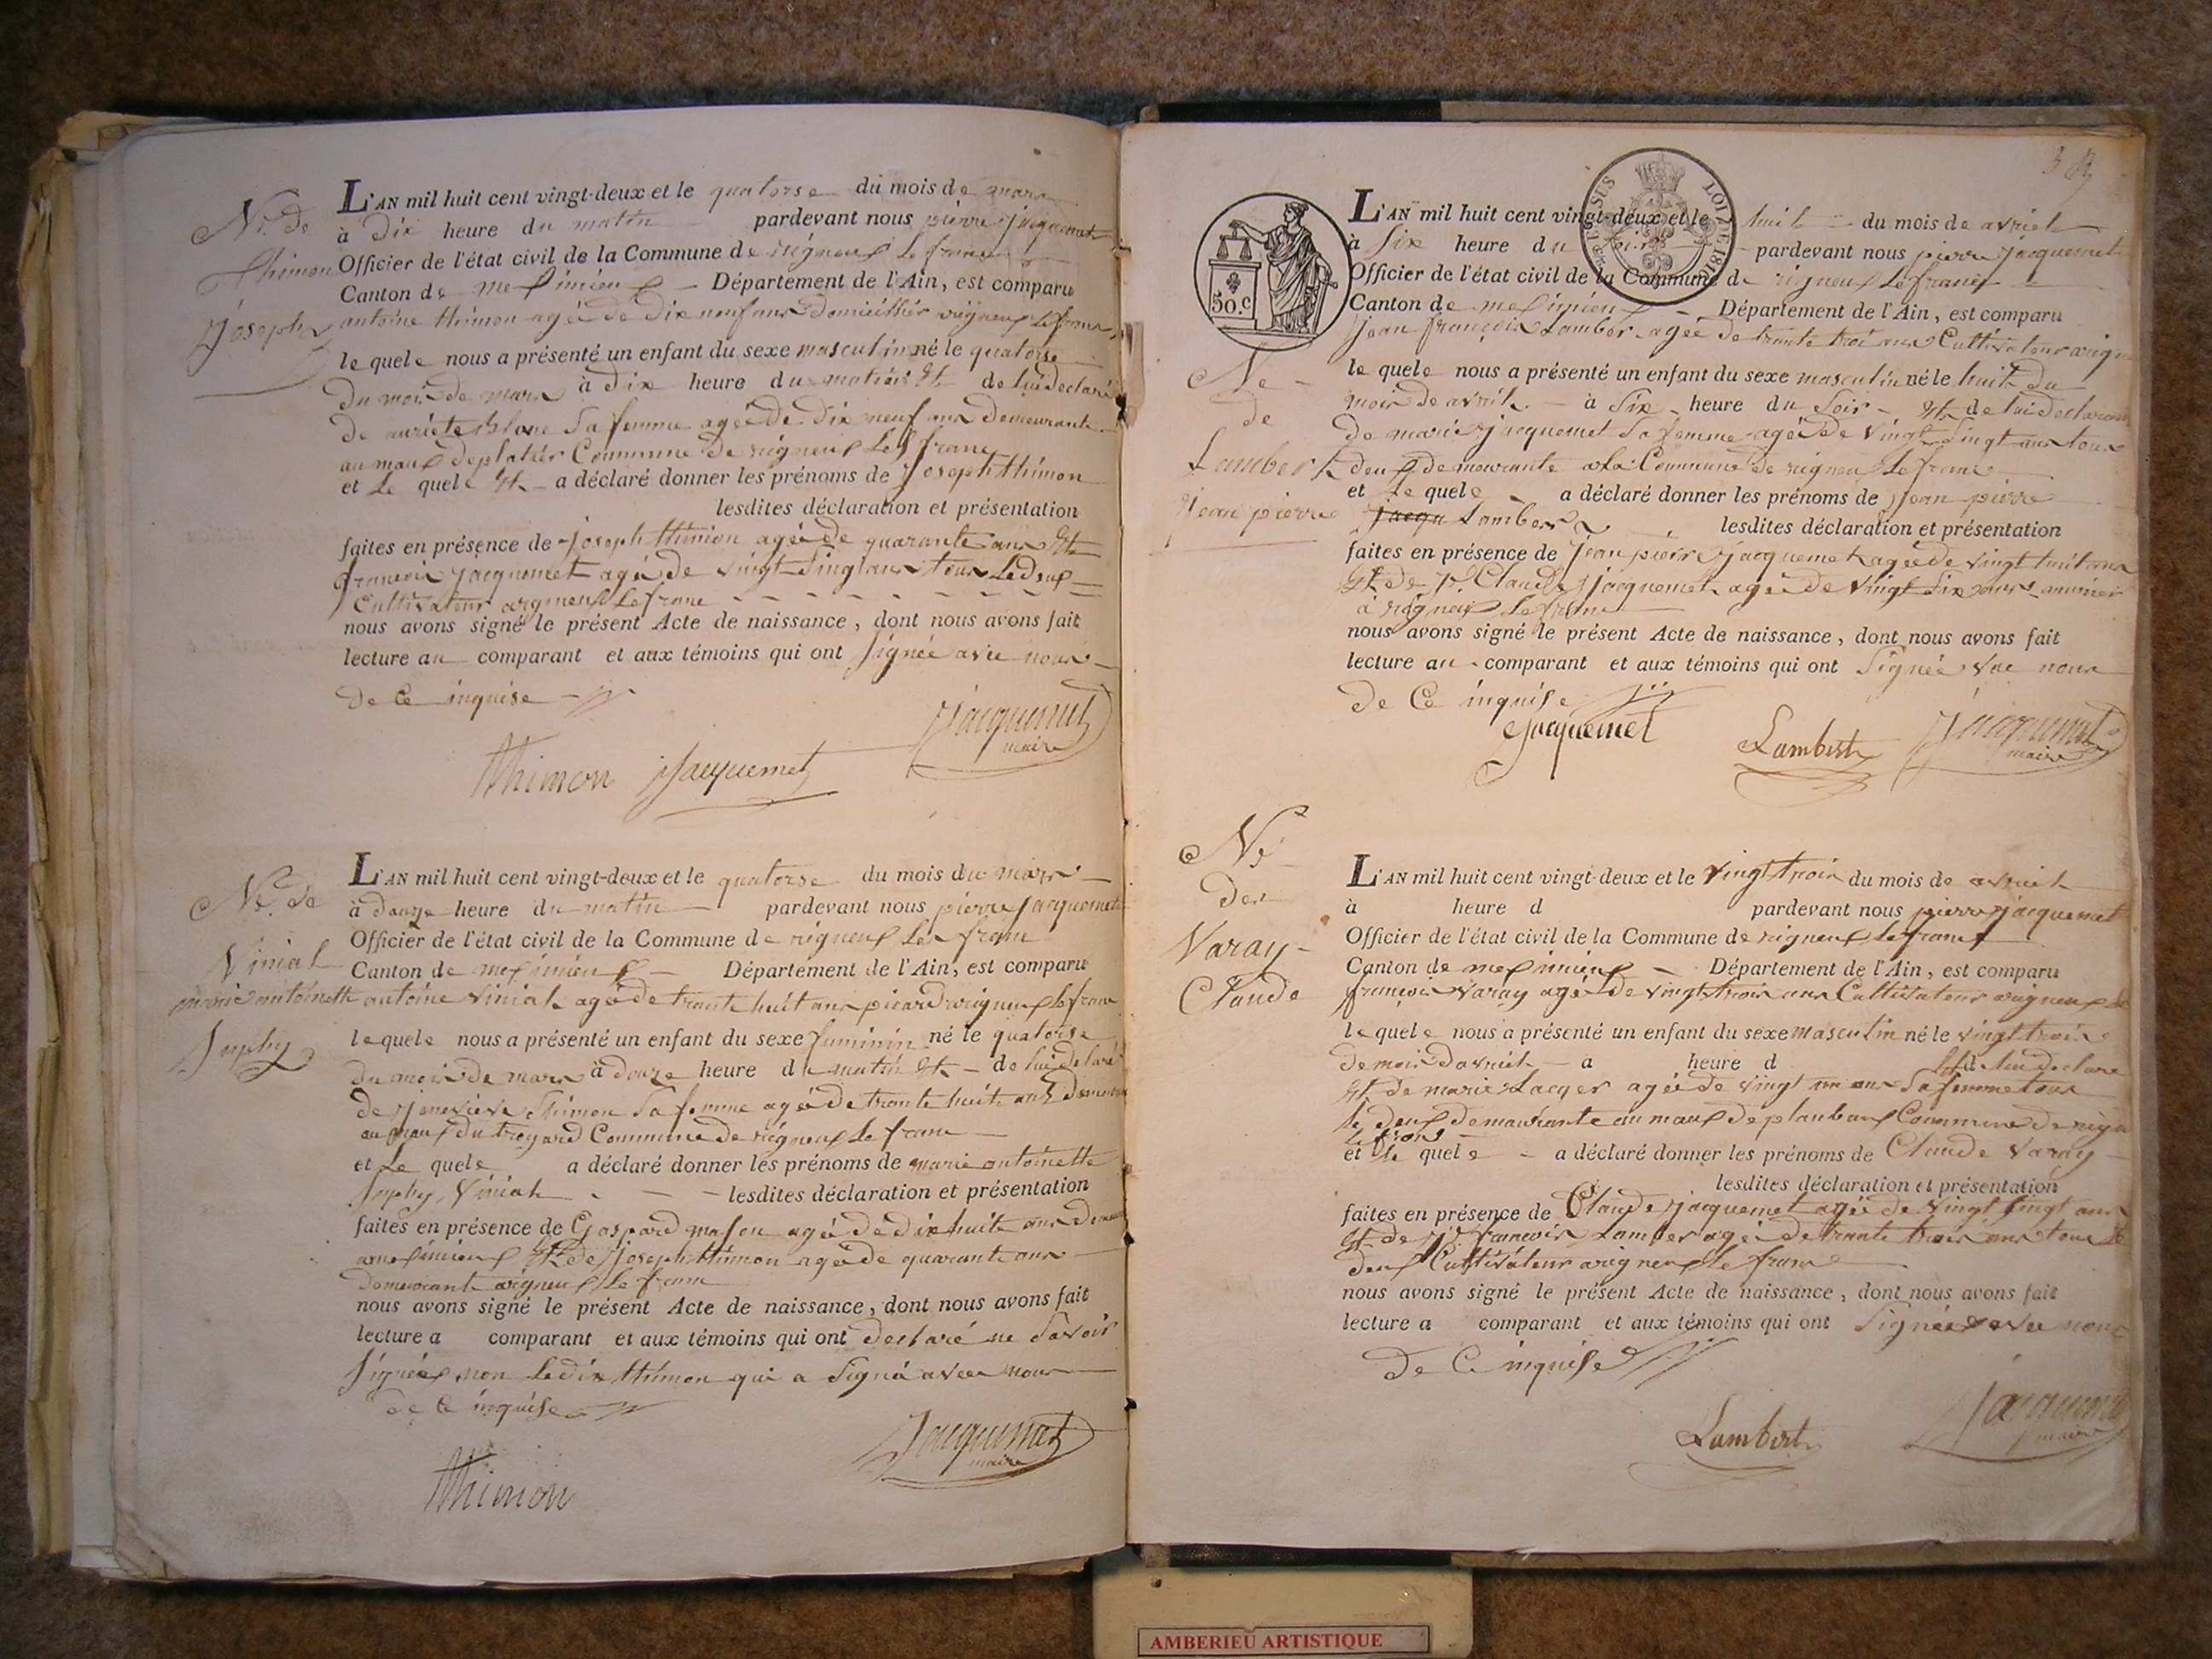 Né de
Thimon
Joseph
L'AN mil huit cent vingt-deux et le quatorse du mois de mars
à dix heure du matin pardevant nous pierre jacquemet
Officier de l'état civil de la Commune de rigneux Le franc
Canton de meximieux Département de l'Ain, est comparu
antoine thimon ageé de dix neuf ans domicillier rigneux le franc
le quele nous a présenté un enfant du sexe masculin né le quatorse
du mois de mars à dix heure du matin Et de lui declaré
de blanc Sa femme ageé de dix neuf ans demeurante
au maux deplatier Commune de rigneux Les franc
et Le quele Et a déclaré donner les prénoms de Joseph thimon
lesdites déclaration et présentation
faites en présence de joseph thimon ageé de quarante ans Et
francois jacquemet ageé de vingt Singt ans tous Le deux
Cultivateur arigneux Le franc
nous avons signé le présent Acte de naissance, dont nous avons fait
lecture au comparant et aux témoins qui ont Signée avec nous
de Ce inquise
Jacquemet
maire
Thimon Jacquemet
Né de
Vinial
marie antoinette
Sophy
L'AN mil huit cent vingt-deux et le quatorse du mois du mars
à douze heure du matin pardevant nous pierre jacquemet
Officier de l'état civil de la Commune de rigneux Le franc
Canton de meximieux Département de l'Ain, est comparu
antoine Vinial ageé de trante huit ans picard arigneux le franc
le quele nous a présenté un enfant du sexe feminin né le quatorse
du mois de mars à douze heure du matin Et de lui declaré
de jenevieve thimon Sa femme ageé de trante huit ans demeurant
au maux du treyard Commune de rigneux Le franc
et Le quele a déclaré donner les prénoms de marie antoinette
Sophy Vinial lesdites déclaration et présentation
faites en présence de Gaspard mason ageé de dix huit ans
ameximieux Et de joseph thimon ageé de quarante ans
Demeurante arigneux Le franc
nous avons signé le présent Acte de naissance, dont nous avons fait
lecture a comparant et aux témoins qui ont declaré ne Savoir
Signée non Ledix thimon qui a Signé avec nous
de Ce inquise
Jacquemet
maire
Thimon
SUS LOI 1816
50.c
Né
de
Lambert
jean pierre
L'AN mil huit cent vingt-deux et le huit du mois de avriel
à Six heure du soir pardevant nous pierre jacquemet
Officier de l'état civil de la Commune de rigneux Le franc
Canton de meximieux Département de l'Ain, est comparu
jean françois Lamber ageé de trante troi ans Cultivateur arign
le quele nous a présenté un enfant du sexe masculin né le huit du
mois de avril à Six heure du Soir Et de lui declaran
de marie jacquemet Sa femme ageé de vingt Singt ans tous
deux demeurante a La Commune de rigneux Le franc
et Le quele a déclaré donner les prénoms de jean pierre
jacqu Lamber lesdites déclaration et présentation
faites en présence de jean pierre jacquemet ageé de vingt huit ans
Et de Claude jacquemet ageé de vingt Six ans
à rigneux Le franc
nous avons signé le présent Acte de naissance, dont nous avons fait
lecture au comparant et aux témoins qui ont Signée vac nous
de Ce inquise
Jacquemet Lambert Jacquemet
maire
Né
de
Varay
Claude
L'AN mil huit cent vingt-deux et le vingt trois du mois de avriel
à heure d pardevant nous pierre jacquemet
Officier de l'état civil de la Commune de rigneux Le franc
Canton de meximieux Département de l'Ain, est comparu
francois Varay ageé de vingt trois ans Cultivateur arigneux Le
le quele nous a présenté un enfant du sexe masculin né le vingt trois
de mois davriel a heure d Et de lui declare
Et de marie Lacger ageé de vingt un ans Sa femme tous
le deux demeurante au maux de planbaux Commune de rign
le franc
et Le quele a déclaré donner les prénoms de Claude Varay
lesdites déclaration et présentation
faites en présence de Claude jacquemet ageé de vingt Singt ans
Et de francois Lamber ageé de trante trois ans tous Le
deux Cultivateur arigneux Le franc
nous avons signé le présent Acte de naissance, dont nous avons fait
lecture a comparant et aux témoins qui ont Signée avec nous
de Ce inquise
Lambert Jacquemet
maire
AMBERIEU ARTISTIQUE